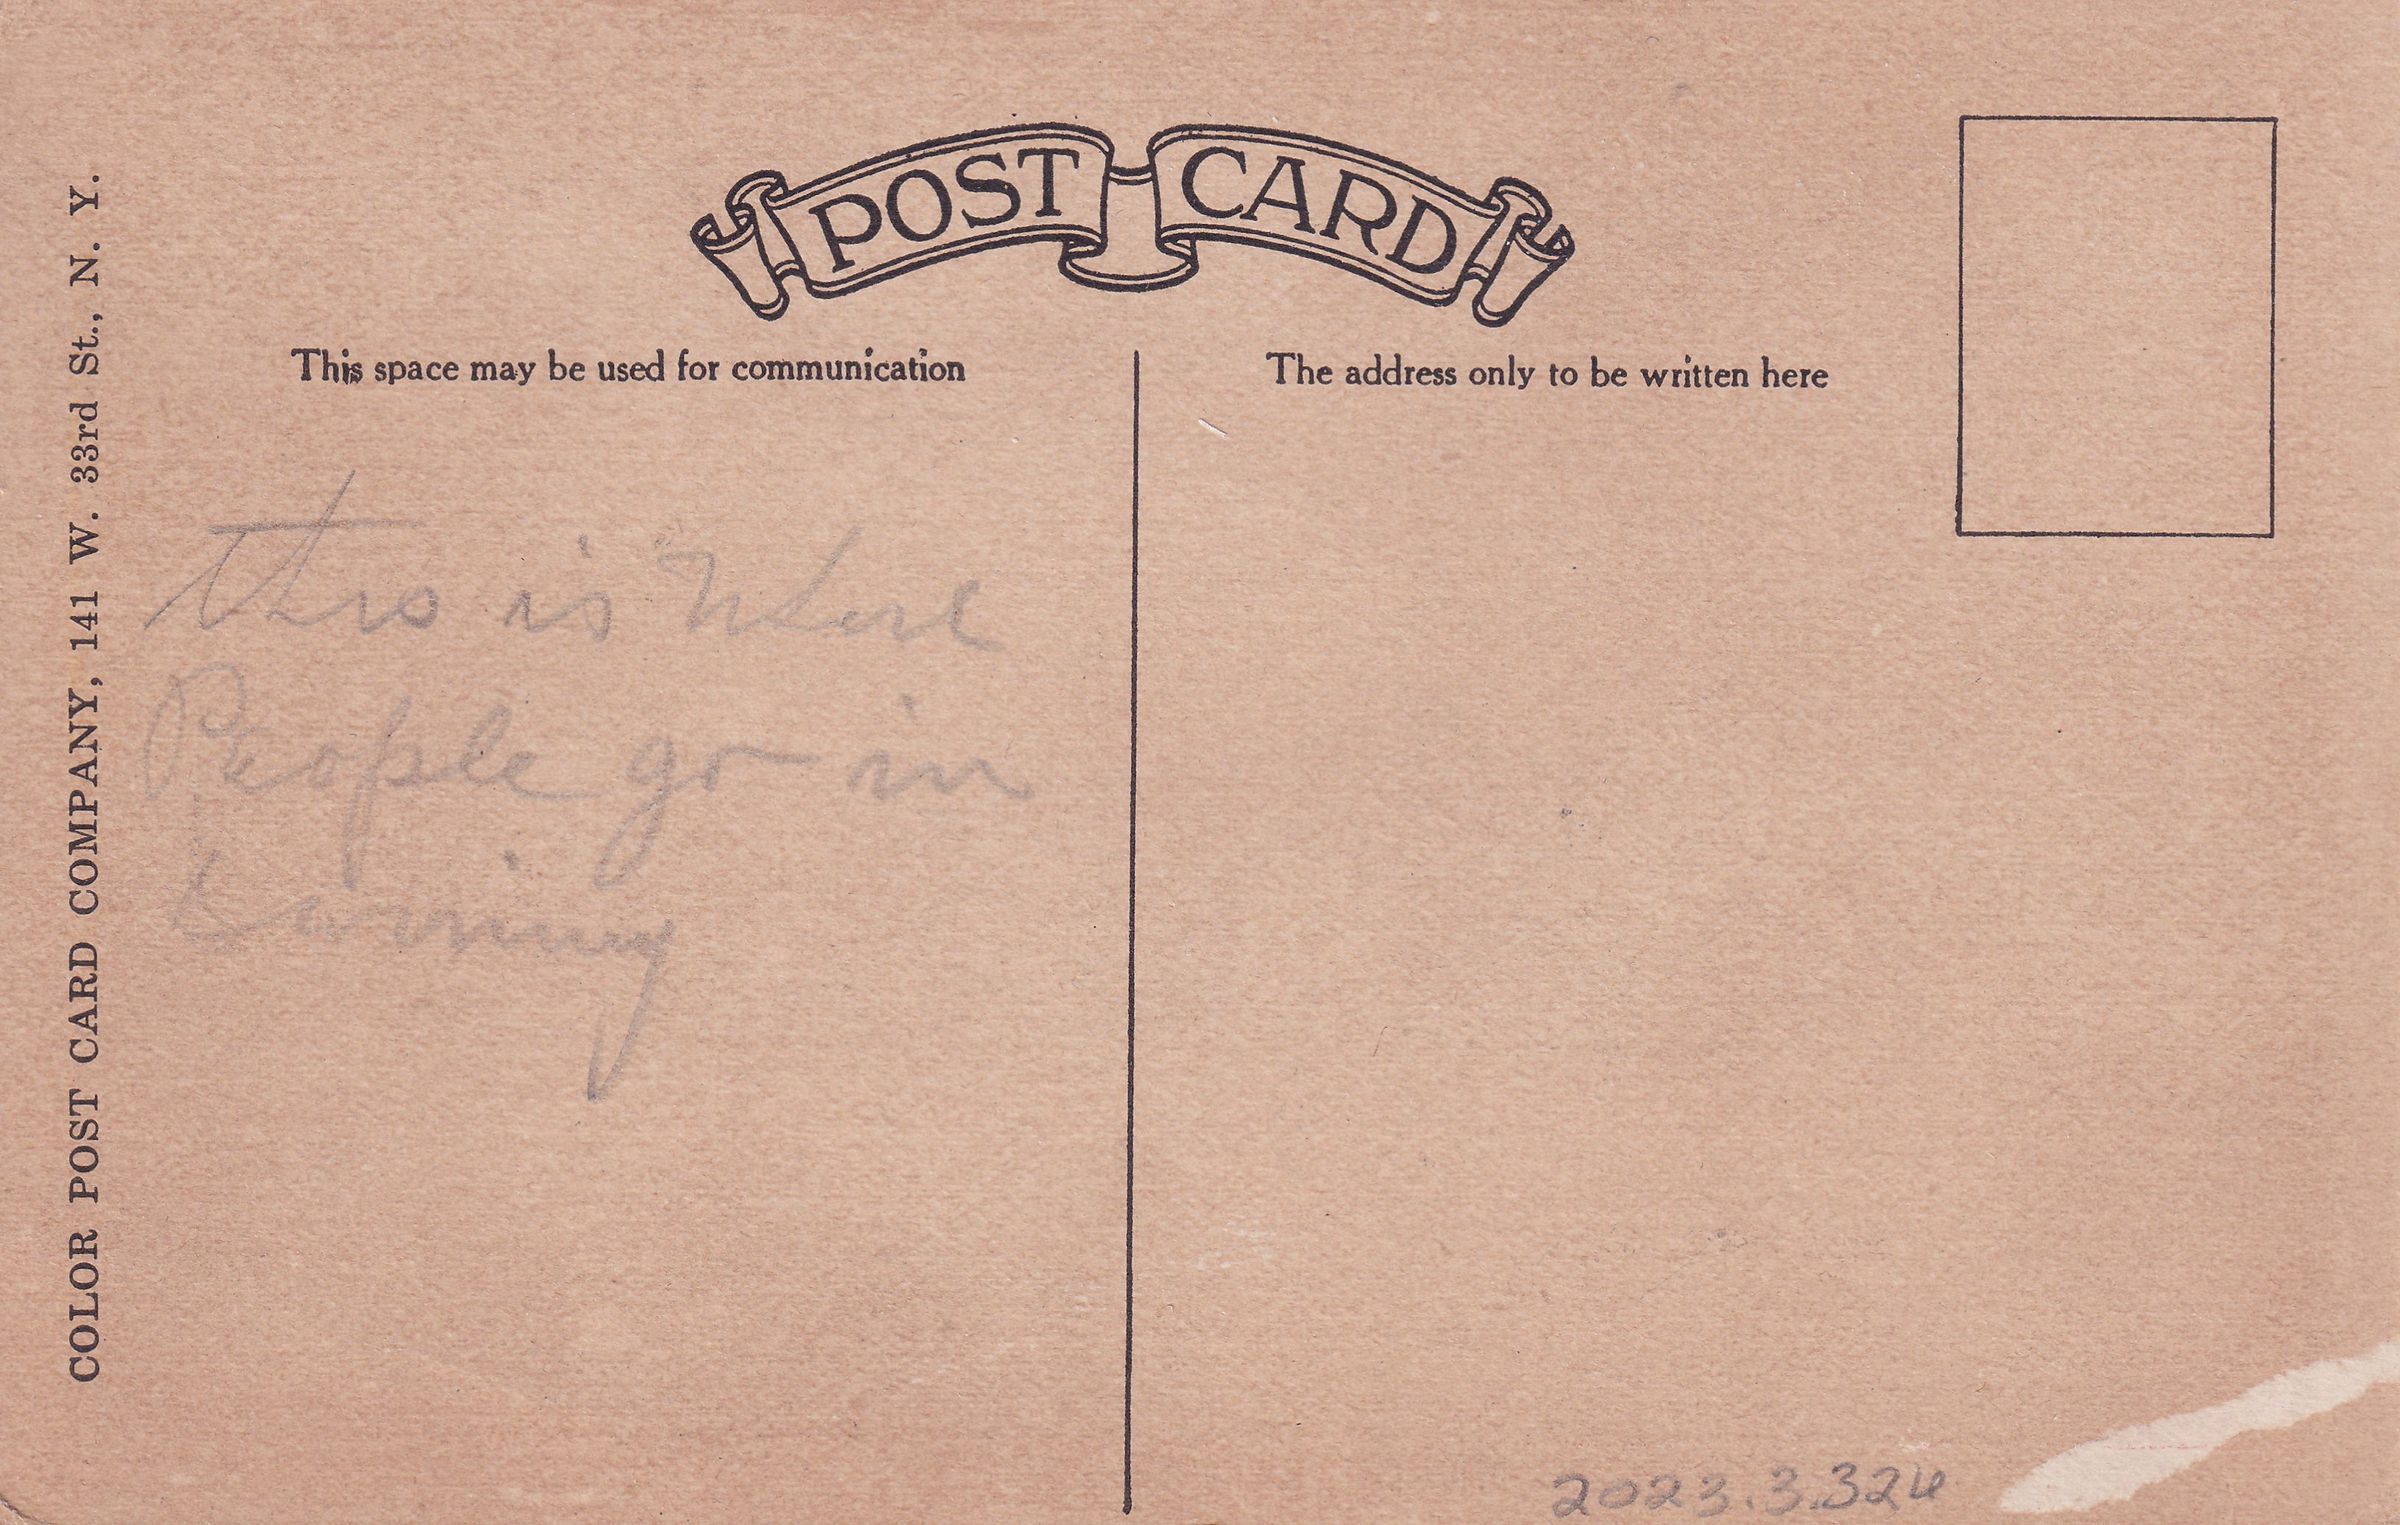 POST CARD
This space may be used for communication
The address only to be written here
this is where
People go in
COLOR POST CARD COMPANY, 141 W. 33rd St., N. Y.
2023.3.324